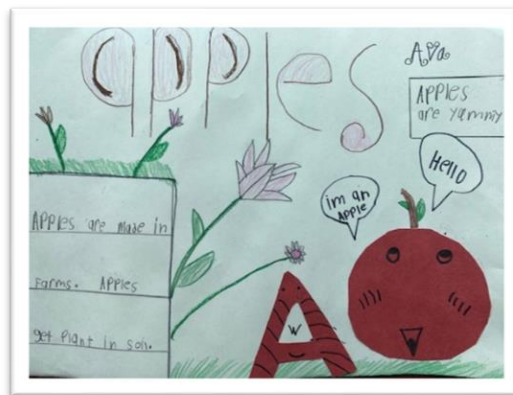 apples
Ava
APPLES
are yammy
Hello
im an
APPle
APPles are Made in
Farms. APPles
get Plant in soil.
A